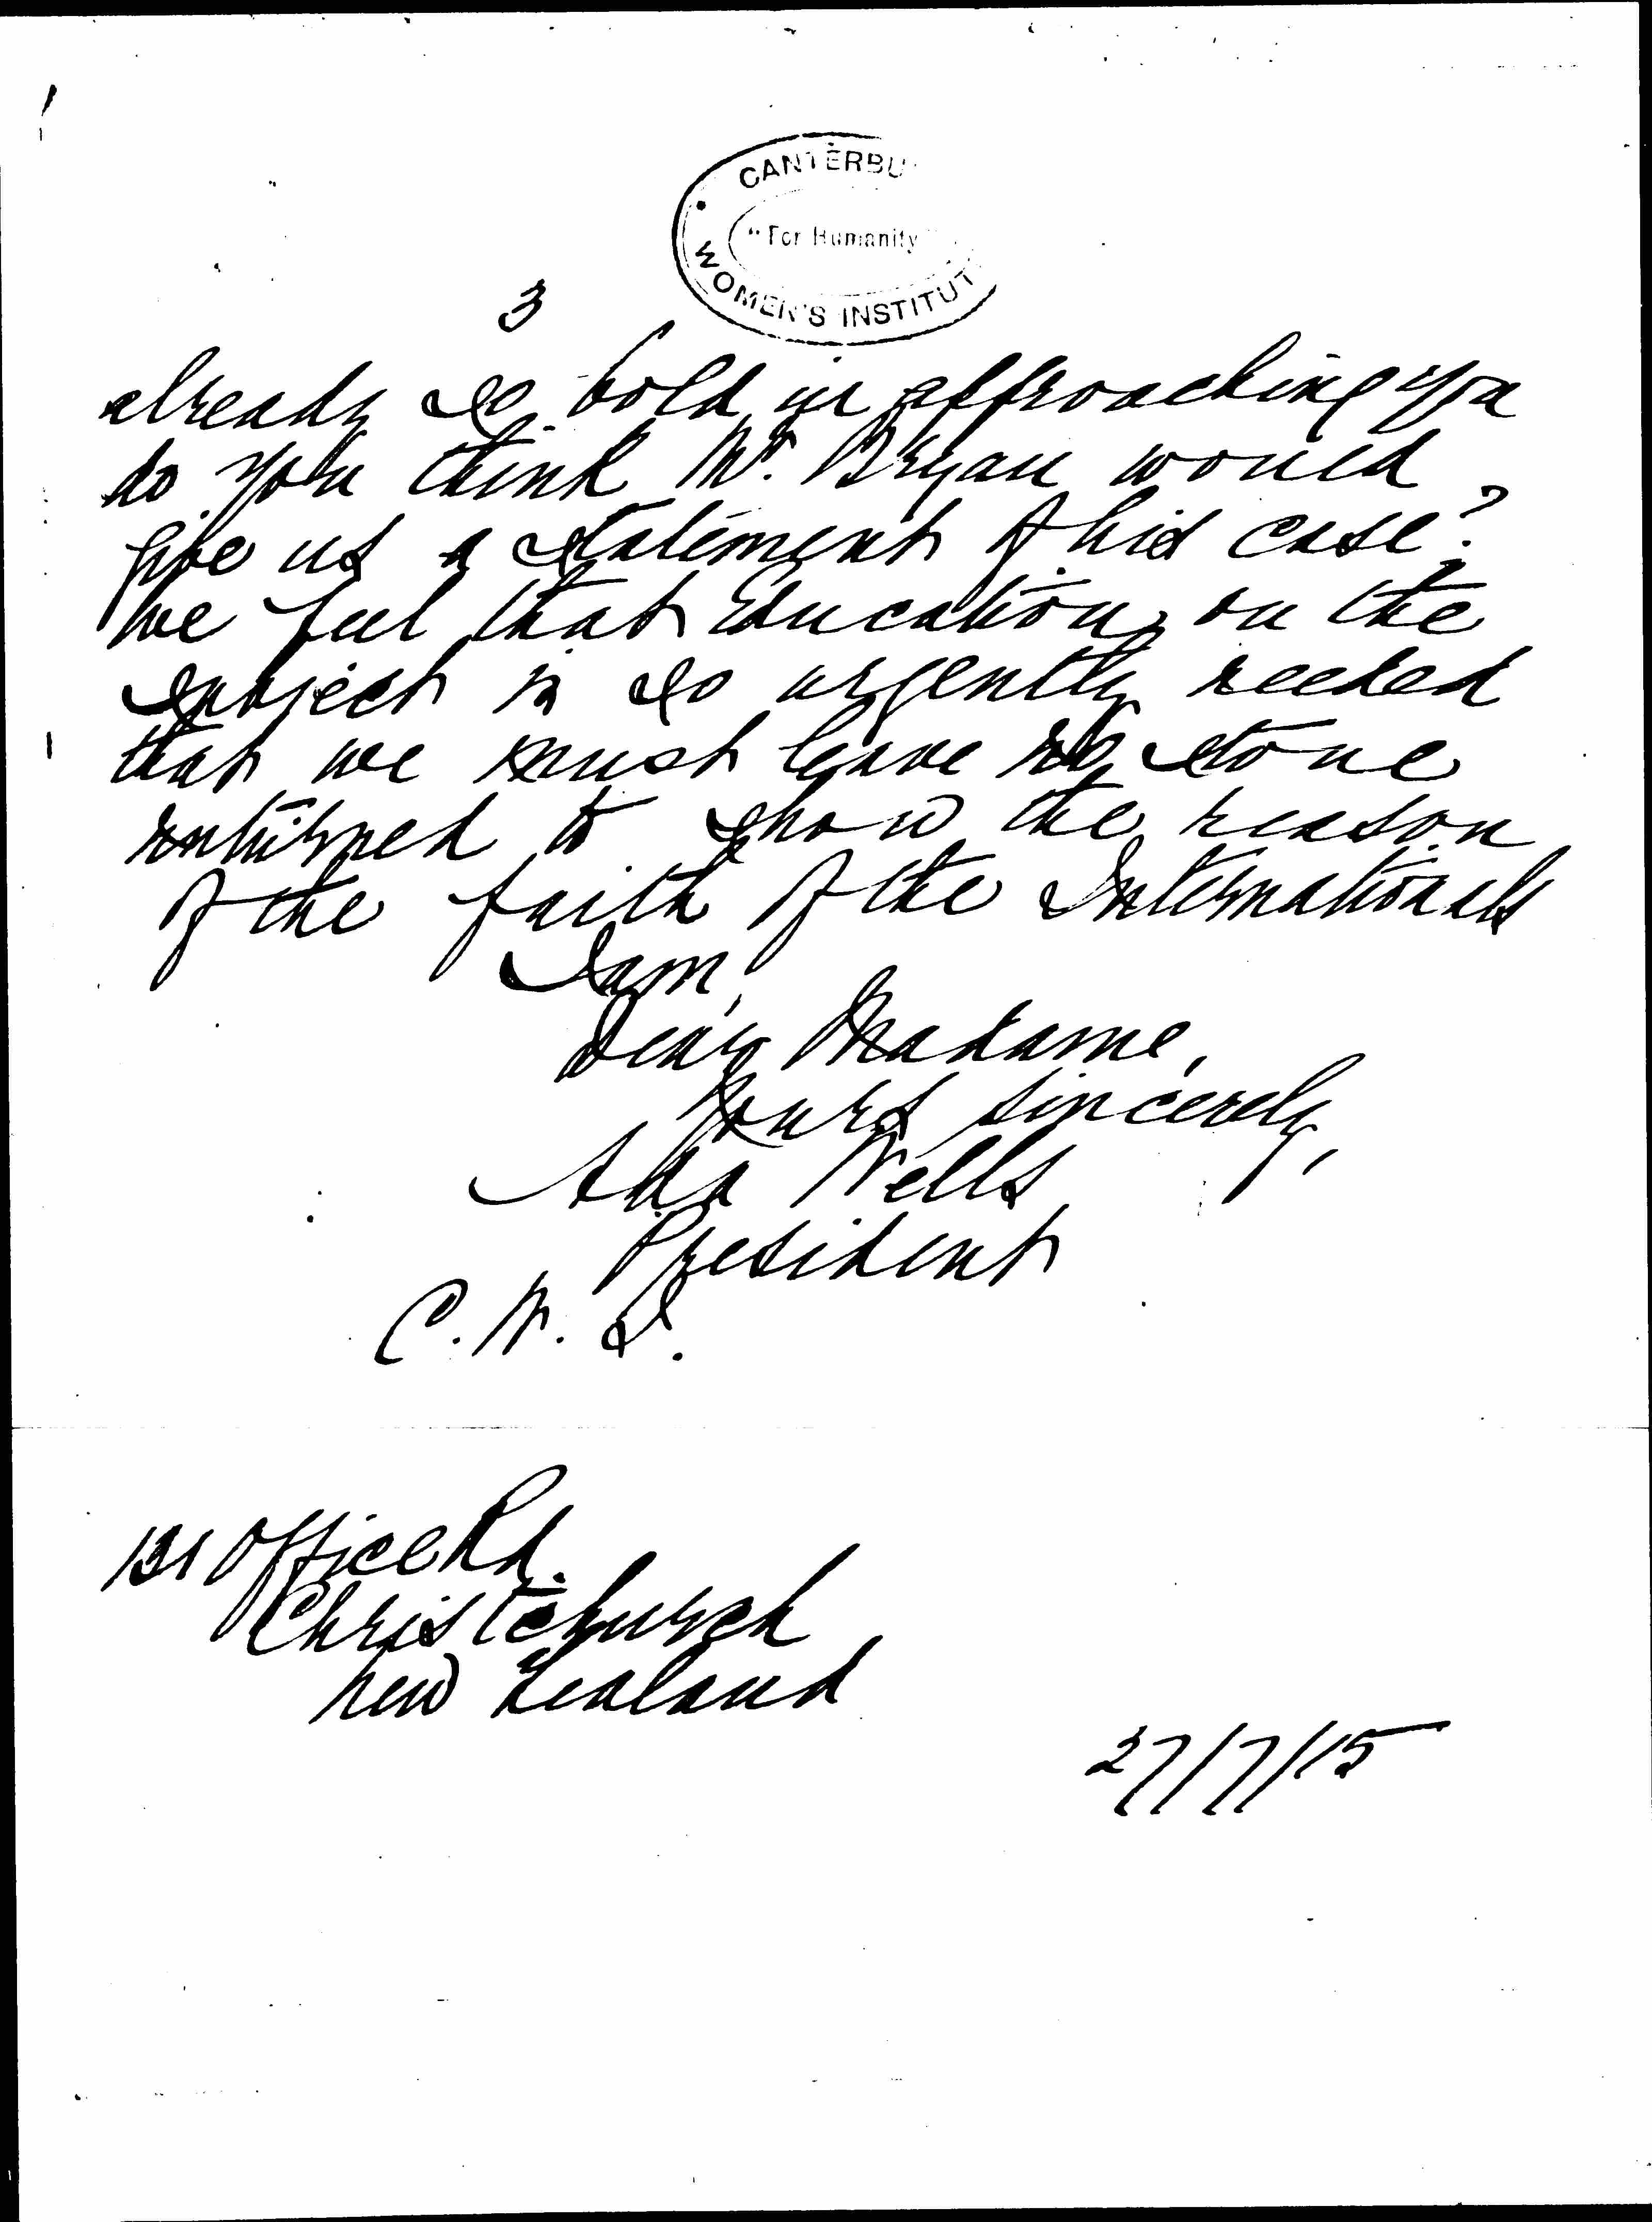 CANTERBU
"For Humanity"
WOMEN'S INSTITUT
3
already so bold in approaching you
do you think Mr. Bryan would
give us a statement of his case?
We feel that Education on the
subject is so urgently needed
that we must leave no stone
unturned to show the reason
of the faith of the Internationals
I am,
Dear Madame,
Yours sincerely,
Ada Wells
President
C. W. I.
131 Office Rd.
Christchurch
New Zealand
27/7/15